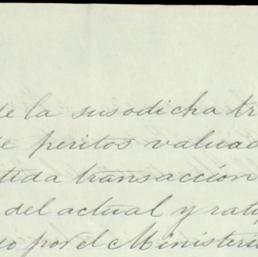 de la susodicha tr
de peritos valuad
tida transacción
del actual y ratif
do por el Ministeri